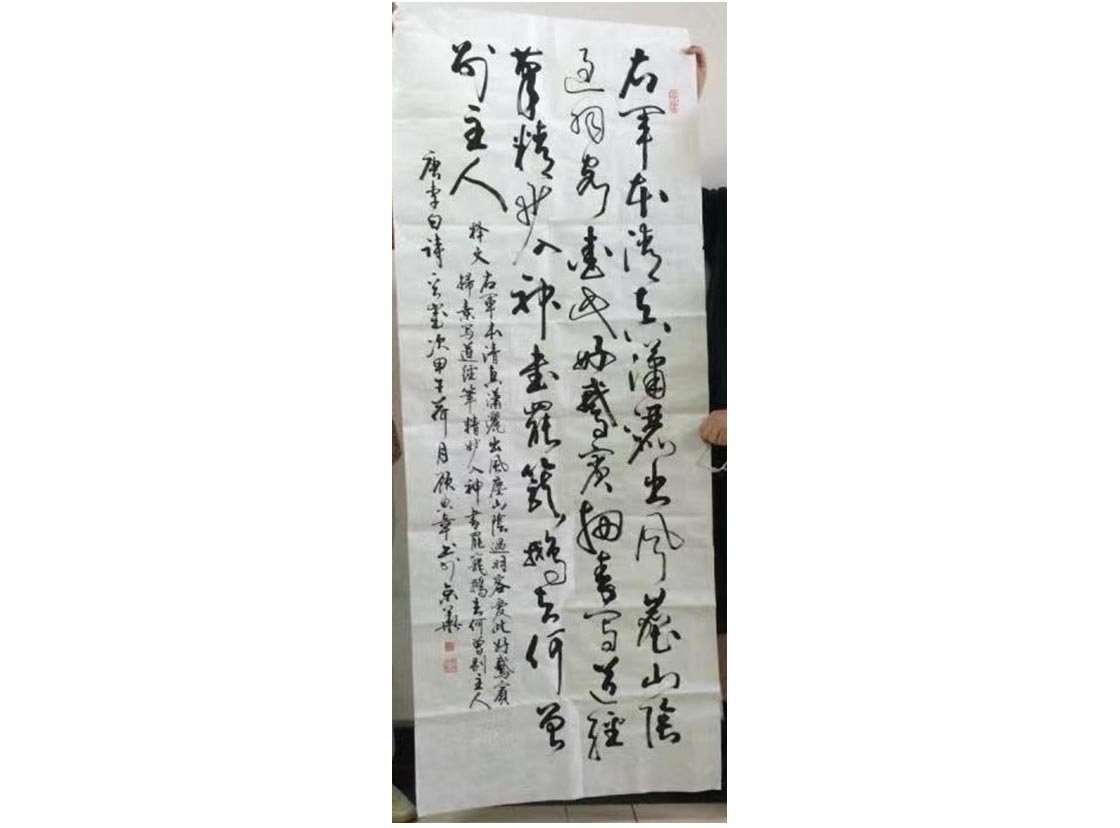 右軍本清真瀟灑出風塵山陰
過羽客愛此好鵞賓掃素寫道經
筆精妙入神書罷籠鵝去何曾
別主人
释文
右軍本清真瀟灑出風塵山陰過羽客愛此好鵞賓
掃素写道经筆精妙入神書罷籠鵝去何曾别主人
唐李白詩一首歲次甲午荷月顾典章书於京華